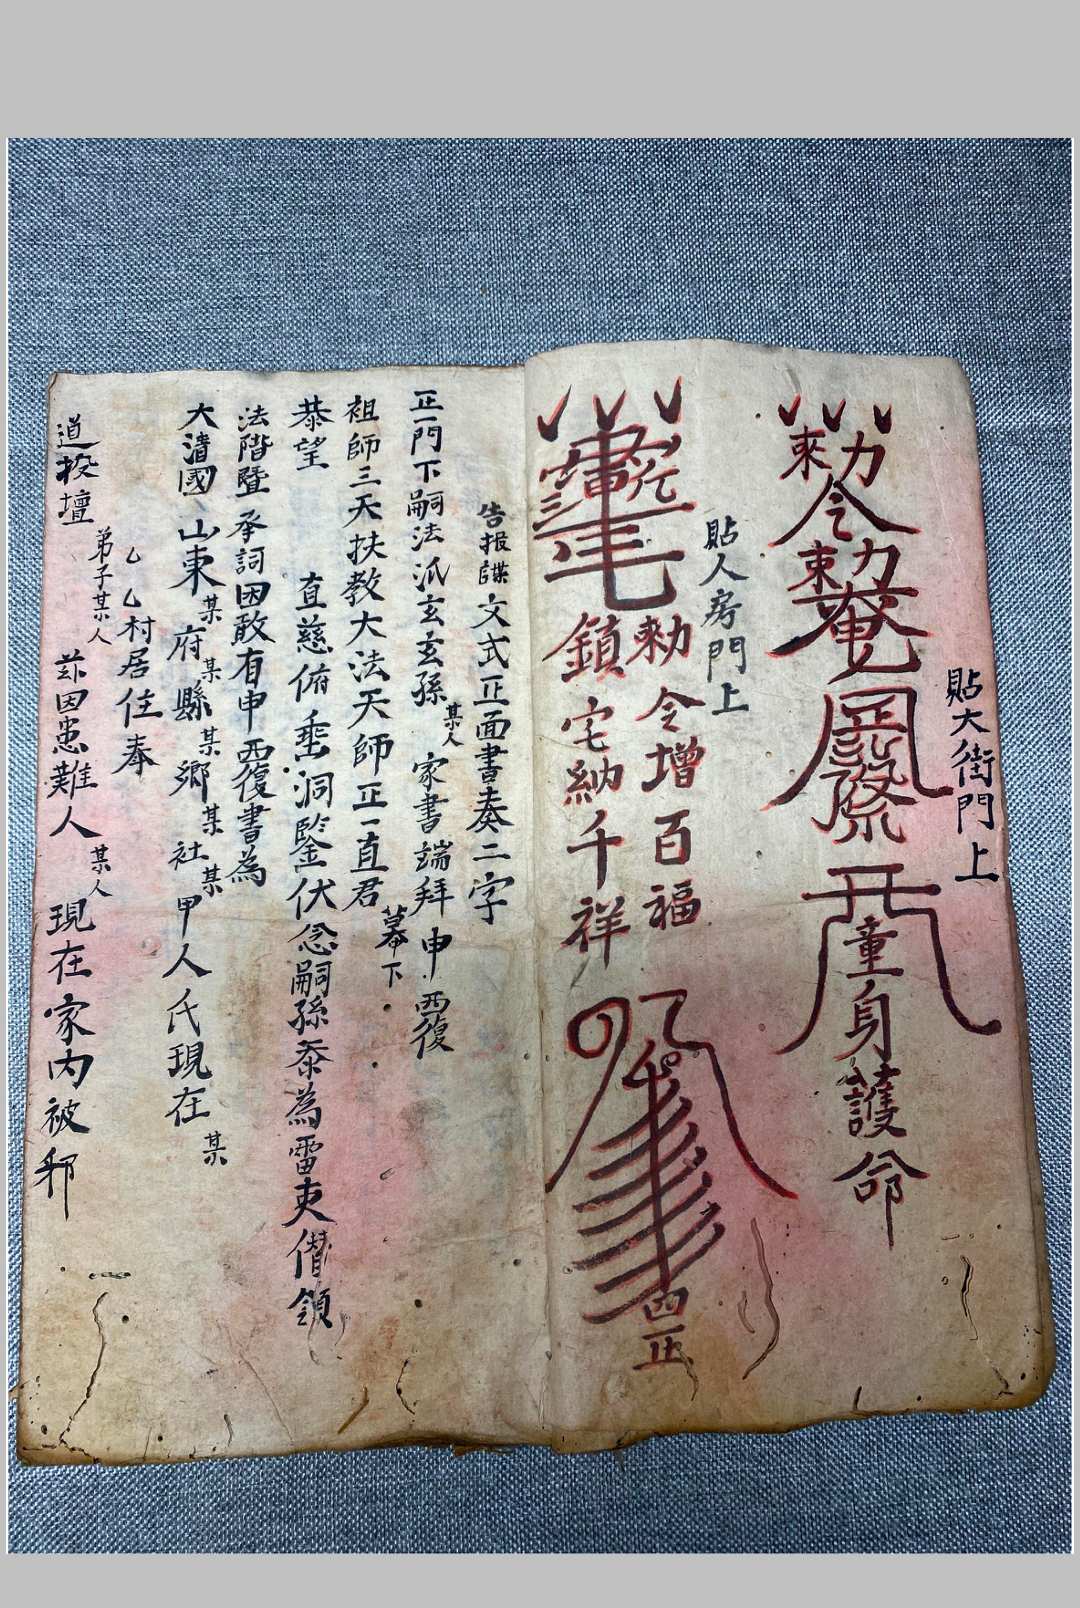 貼大街門上
勅令
童身護命
貼人房門上
勅令增百福
鎮宅納千祥
四正
告报牒文式正面書奏二字
正一門下嗣法派玄玄孫某人家書端拜申西復
祖師三天扶教大法天師正一直君幕下
恭望直慈俯垂洞鑒伏念嗣孫忝為雷吏僭領
法階暨承詞因敢有申西復書為
大清國山東某府某縣某鄉某社某甲人氏現在某
乙乙村居住奉
道投壇弟子某人兹因患難人某人現在家內被邪